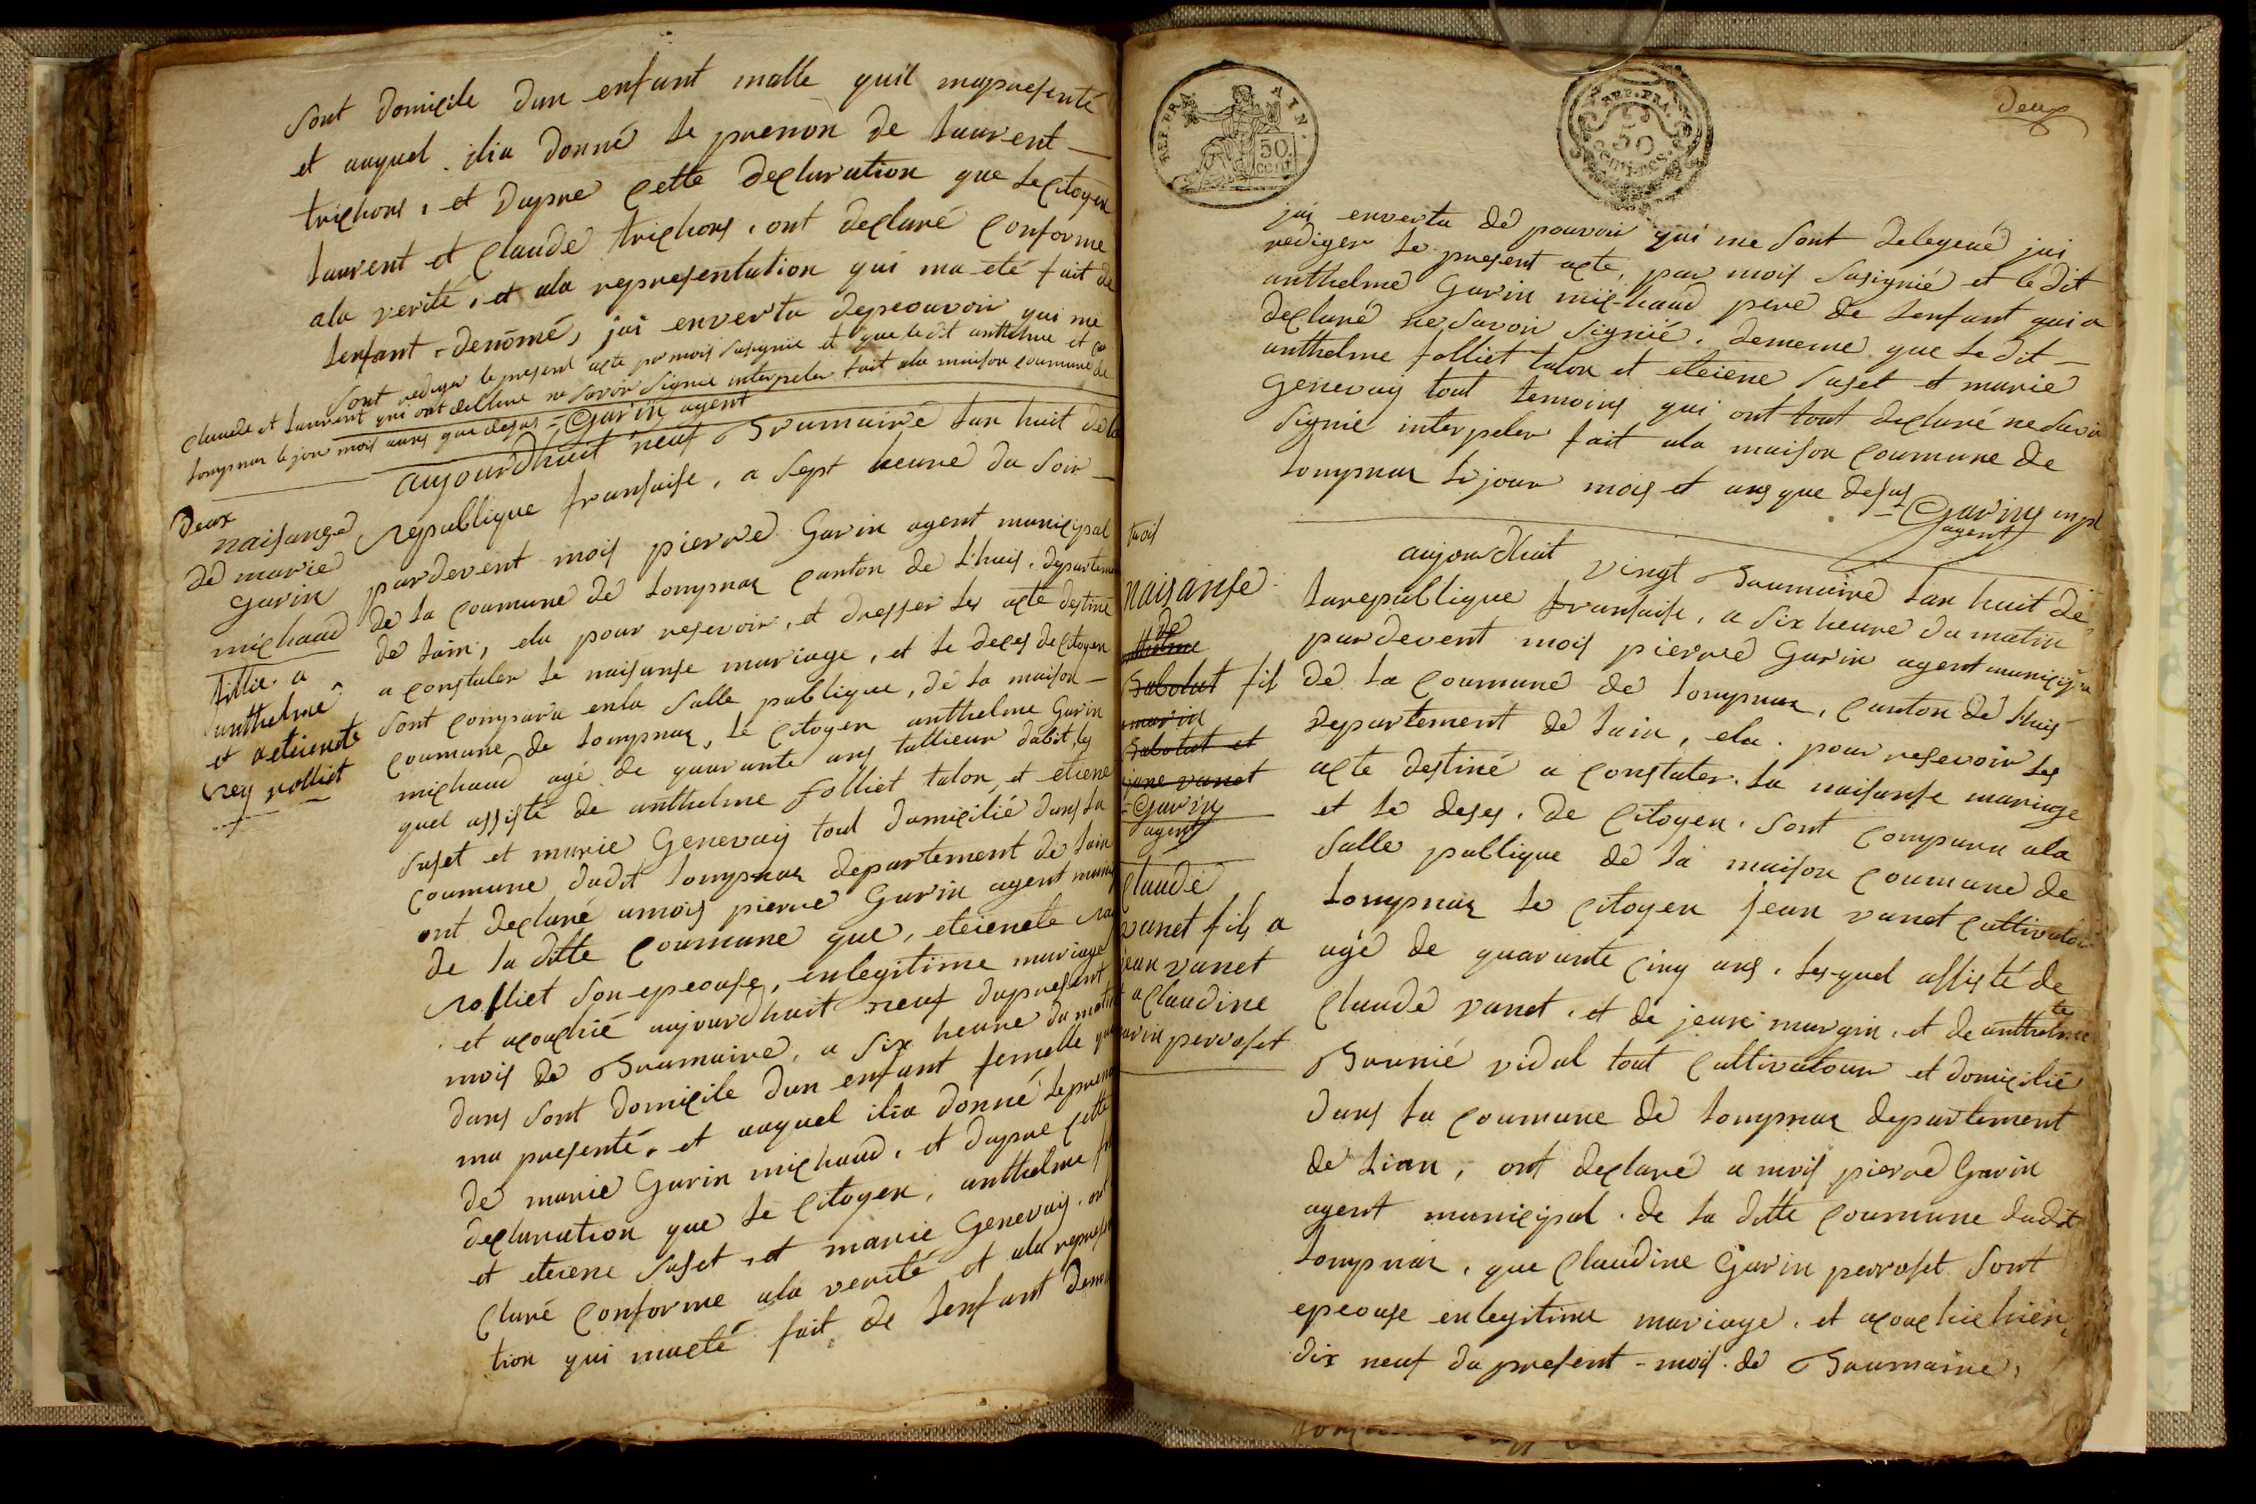 Sont domicile dun enfant malle quil mapresenté
et auquel ilia donné le prenon de laurent
trichons, et Dapne cette declaration que le citoyen
laurent et claude trichons, ont declaré conforme
ala verité, et ala representation qui ma eté fait de
lenfant denomé, jai envertu depeouvoir qui me
sont rediger le present acte par mois susignie et que le dit anthelme et
claude et laurent qui ont declaré ne savoir signie interpeler fait ala maison coumune de
lompnas le jour mois ans que desus = Garin agent
aujourdhuit neuf Brumaire lan huit de la
republique fransaise, a sept heure du soir
pardevent mois pierre Garin agent municipal
de la coumune de lompnas canton de lhuis, departemen
de lain, elu pour resevoir, et dresser les acte destiné
a constater le naisanse mariage, et le deces de citoyen
sont comparu enla salle publique, de la maison
coumune de lompnas, le citoyen anthelme Garin
michaud agé de quarante ans tallieur dabit, les
quel assisté de anthelme folliet talon, et etiene
suset et marie Genevay tout domicilié dans la
coumune dudit lompnas departement de lain
ont declaré amois pierre Garin agent munic
de la ditte coumune que, eteienete
rolliet son epeouse, enlegitime mariage
et acouchié aujourdhuit neuf dupresent
mois de Brumaire, a six heure du matin
dans sont domicile dun enfant femelle
ma presenté, et auquel ilia donné le preno
de marie Garin michaud, et dapne cette
declaration que le citoyen, anthelme
et eteiene suset, et marie Genevay, ont
claré conforme ala verité et ala represen
tion qui maeté fait de lenfant deno
Deux
naisange
de marie
garin
michaud
fillie a
anthelme
et a eteienete
rey rolliet
REP. FRA. AIN.
50 cent
REP. FRA.
50
CENTIMES
deux
jai envertu de pouvoir qui me sont delegeué jai
rediger le present acte, par mois susignié et le dit
anthelme Garin michaud pere de lenfant qui a
declaré ne savoir signié, dememe que le dit
anthelme folliet talon et eteiene suset et marie
Genevay tout temoins qui ont tout declaré ne savoir
signie interpeler fait ala maison coumune de
lompnas le jour mois et ans que desus
= Garin mpl
agent
aujourdhuit vingt Brumaire lan huit de
larepublique fransaise, a six heure du matin
pardevent mois pierre Garin agent municipa
de la coumune de lompnas, canton de lhuis
departement de lain, elu pour resevoir les
acte destiné a constater la naisanse mariage
et le deses. de citoyen. sont comparu ala
salle publique de la maison coumune de
lompnas le citoyen jean vanet cultivateur
agé de quarante cinq ans, les quel assisté de
claude vanet, et de jean margin, et de anthelme
Bournié vidal tout cultivatour et domicilié
dans la coumune de lompnas departement
de lian, ont declaré a mois pierre Garin
agent municipal de la ditte coumune dudit
lompnas, que claudine Garin perroset sont
epeouse enlegitime mariage, et acouchie hier
dix neuf du present mois de Brumaire,
trois
naisanse
de
Sabolut fil
marin
Sabolut et
jane vanet
= Garin
agent
claude
vanet fils a
jean vanet
et a claudine
garin perroset